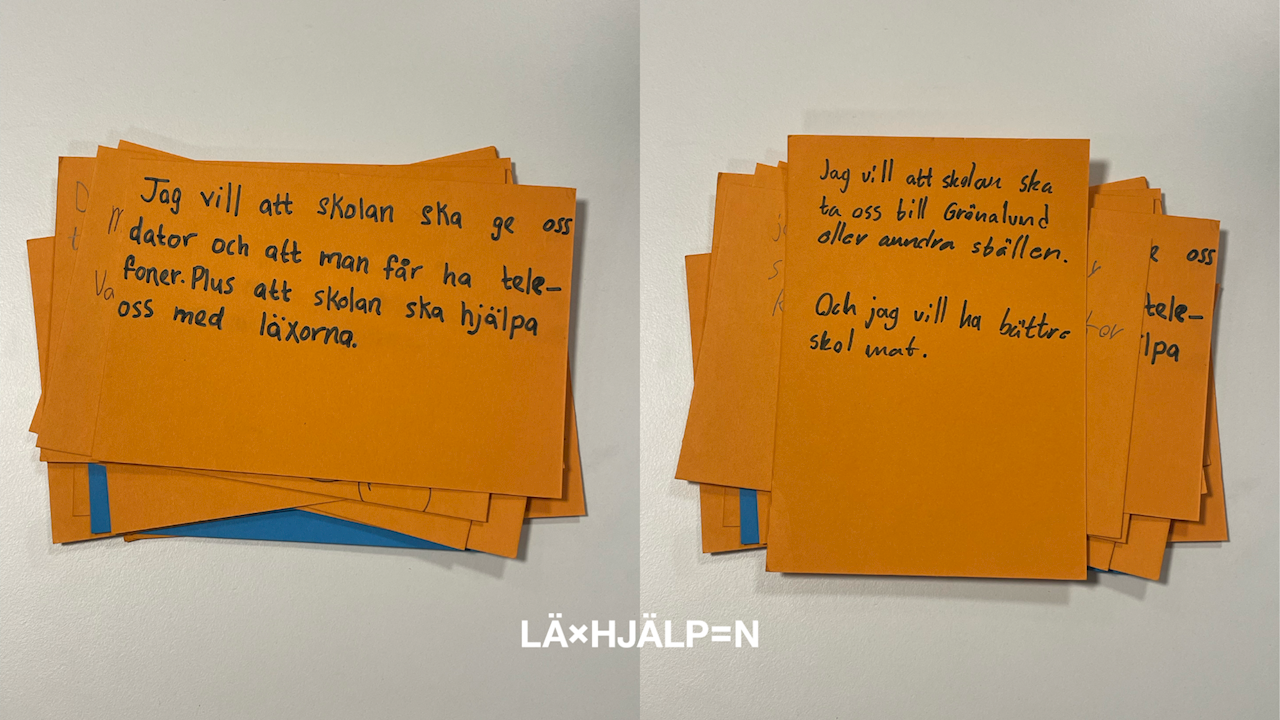 Jag vill att skolan ska ge oss
dator och att man får ha tele-
foner. Plus att skolan ska hjälpa
oss med läxorna.
Jag vill att skolan ska
ta oss till Grönalund
eller anndra ställen.
Och jag vill ha bättre
skol mat.
oss
tele-
lpa
LÄ×HJÄLP=N